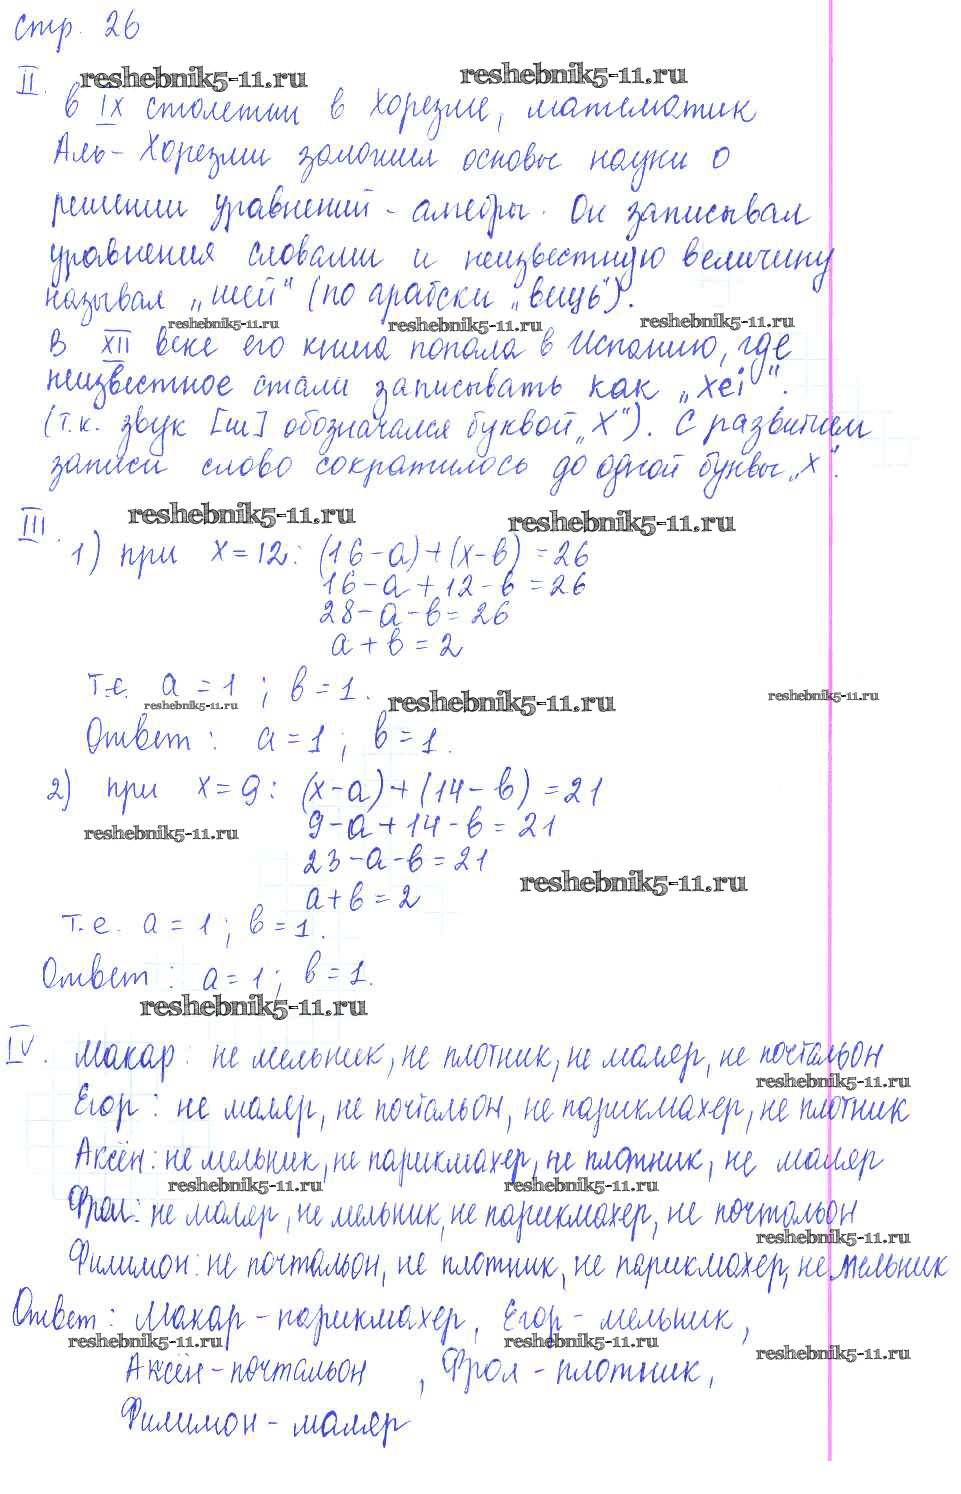 стр. 26
reshebnik5-11.ru reshebnik5-11.ru
II. В IX столетии в Хорезме, математик
Аль-Хорезми заложил основы науки о
решении уравнений - алгебры. Он записывал
уравнения словами и неизвестную величину
называл „шей“ (по арабски „вещь“).
reshebnik5-11.ru reshebnik5-11.ru reshebnik5-11.ru
В XII веке его книга попала в Испанию, где
неизвестное стали записывать как „xei“.
(т.к. звук [ш] обозначался буквой „X“). С развитием
записи слово сократилось до одной буквы „X“.
reshebnik5-11.ru reshebnik5-11.ru
III. 1) при x=12: (16-a)+(x-в)=26
16-a+12-в=26
28-a-в=26
a+в=2
т.е. a=1; в=1.
reshebnik5-11.ru reshebnik5-11.ru reshebnik5-11.ru
Ответ: a=1; в=1.
2) при x=9: (x-a)+(14-в)=21
9-a+14-в=21
reshebnik5-11.ru
23-a-в=21
reshebnik5-11.ru
a+в=2
т.е. a=1; в=1.
Ответ: a=1; в=1.
reshebnik5-11.ru
IV. Макар: не мельник, не плотник, не маляр, не почтальон
reshebnik5-11.ru
Егор: не маляр, не почтальон, не парикмахер, не плотник
Аксён: не мельник, не парикмахер, не плотник, не маляр
reshebnik5-11.ru reshebnik5-11.ru
Фрол: не маляр, не мельник, не парикмахер, не почтальон
reshebnik5-11.ru
Филимон: не почтальон, не плотник, не парикмахер, не мельник
Ответ: Макар - парикмахер, Егор - мельник,
reshebnik5-11.ru reshebnik5-11.ru reshebnik5-11.ru
Аксён - почтальон, Фрол - плотник,
Филимон - маляр